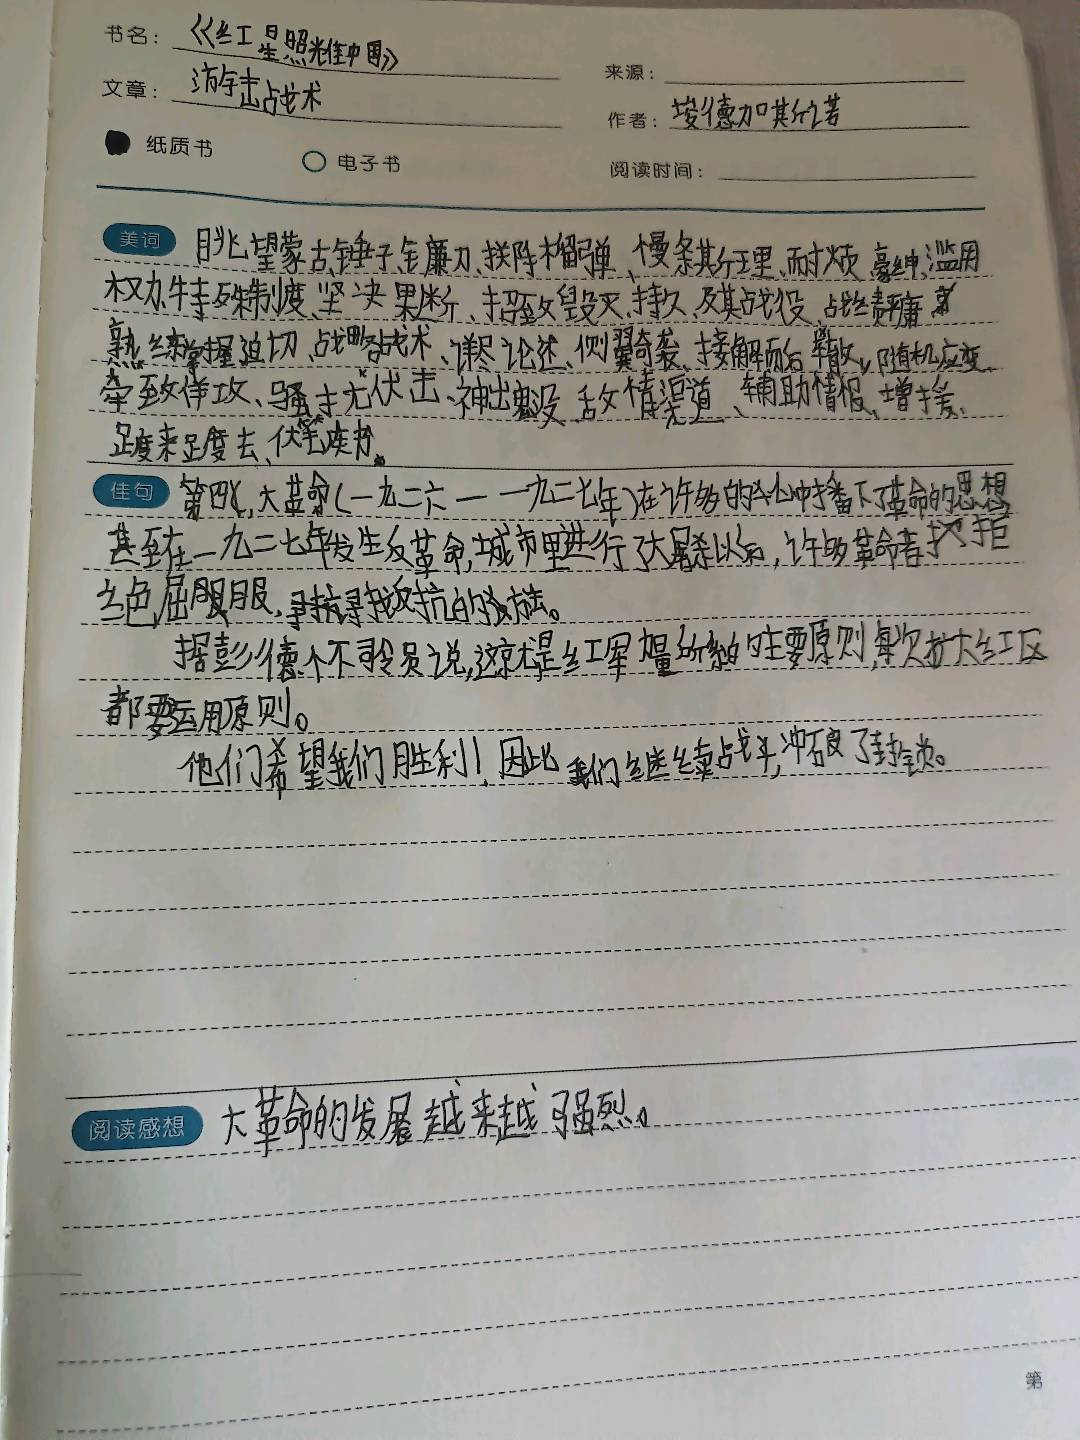 书名：《红星照耀中国》
来源：
文章：游击战术
作者：埃德加斯诺
纸质书 电子书
阅读时间：
美词 眺望蒙古、锤子、镰刀、手榴弹、慢条斯理、耐烦、豪绅、滥用
权力、特殊制度、坚决果断、招致毁灭、持久、及其战役、战线
熟练掌握、迫切、战略战术、详尽论述、侧翼奇袭、接触而后 散、随机应变、
牵致佯攻、骚扰、伏击、神出鬼没、敌情渠道、辅助情报、增援、
足度来足度去、伏笔读书。
佳句 第四，大革命（一九二六——一九二七年）在许多的人心中播下了革命的思想
甚至在一九二七年发生反革命，城市里进行了大屠杀以后，许多革命者 拒
绝屈服，寻找 反抗的方法。
据彭德怀司令员说，这就是红军 的主要原则，每次扩大红区
都要运用原则。
他们希望我们胜利！因此我们继续战斗，冲破了封锁。
阅读感想 大革命的发展越来越强烈。
第